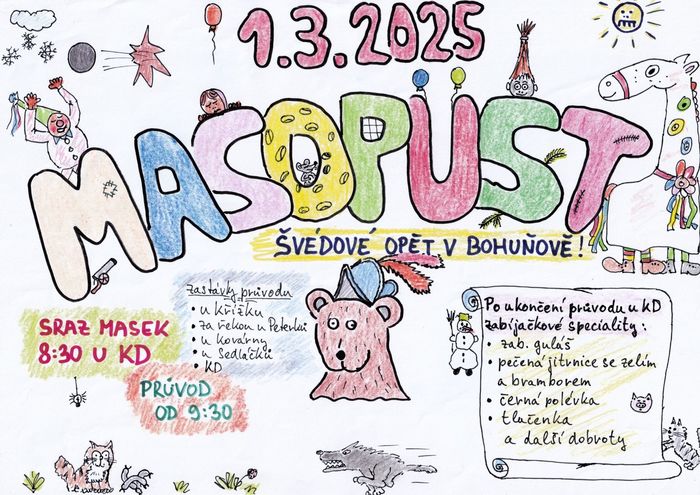 1.3.2025
MASOPUST
ŠVÉDOVÉ OPĚT V BOHUŇOVĚ!
SRAZ MASEK
8:30 U KD
PRŮVOD
OD 9:30
zastávky průvodu
• u Křížku
• za řekou u Peterků
• u kovárny
• u Sedláčků
• KD
Po ukončení průvodu u KD
zabíjačkové speciality:
• zab. guláš
• pečená jitrnice se zelím
a bramborem
• černá polévka
• tlačenka
a další dobroty